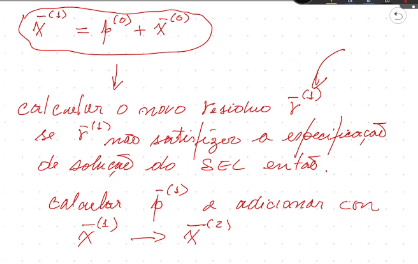 x̄⁽¹⁾ = p̄⁽⁰⁾ + x̄⁽⁰⁾
calcular o novo resíduo r̄⁽¹⁾
se r̄⁽¹⁾ não satisfizer a especificação
de solução do SEL então.
calcular p̄⁽¹⁾ e adicionar con
x̄⁽¹⁾ → x̄⁽²⁾